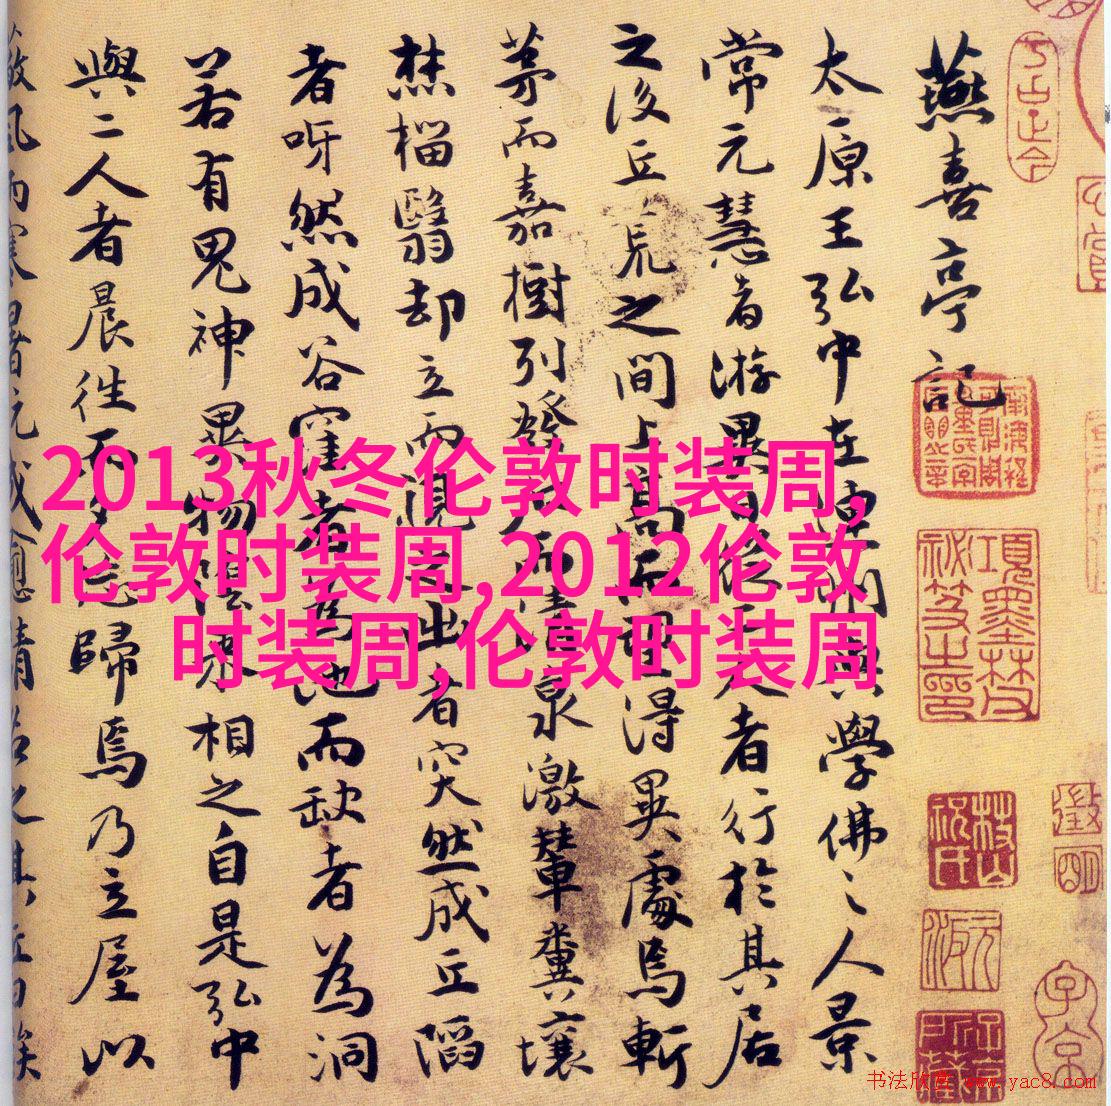 2013秋冬伦敦时装周,
伦敦时装周,2012伦敦
时装周,伦敦时装周
燕喜亭記
太原王弘中在連州與學佛之人景
常元慧者游異日從二人者行於其居
之後丘荒之間上高而望得異處焉斬
茅而嘉樹列發石而清泉激輦糞壤
椔翳却立而視之出者突然成丘陷
者呀然成谷窪者為池而缺者為洞
若有鬼神異物陰來相之自是弘中
與二人者晨往而夕忘歸焉乃立屋以
風雨寒暑者成愈請名之其丘曰俟
項墨林父秘笈之印
枝山
祝氏
徵明
子京
书法欣赏 www.yac8.com